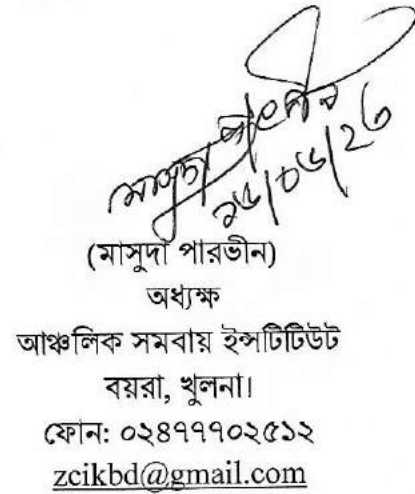 মাসুদা পারভীন
(মাসুদা পারভীন)
অধ্যক্ষ
আঞ্চলিক সমবায় ইন্সটিটিউট
বয়রা, খুলনা।
ফোন: ০২৪৭৭৭০২৫১২
zcikbd@gmail.com